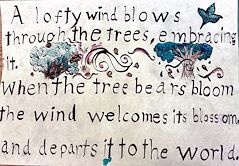 A lofty wind blows
through the trees, embracing
it.
When the tree bears bloom,
the wind welcomes its blossom,
and departs it to the world.